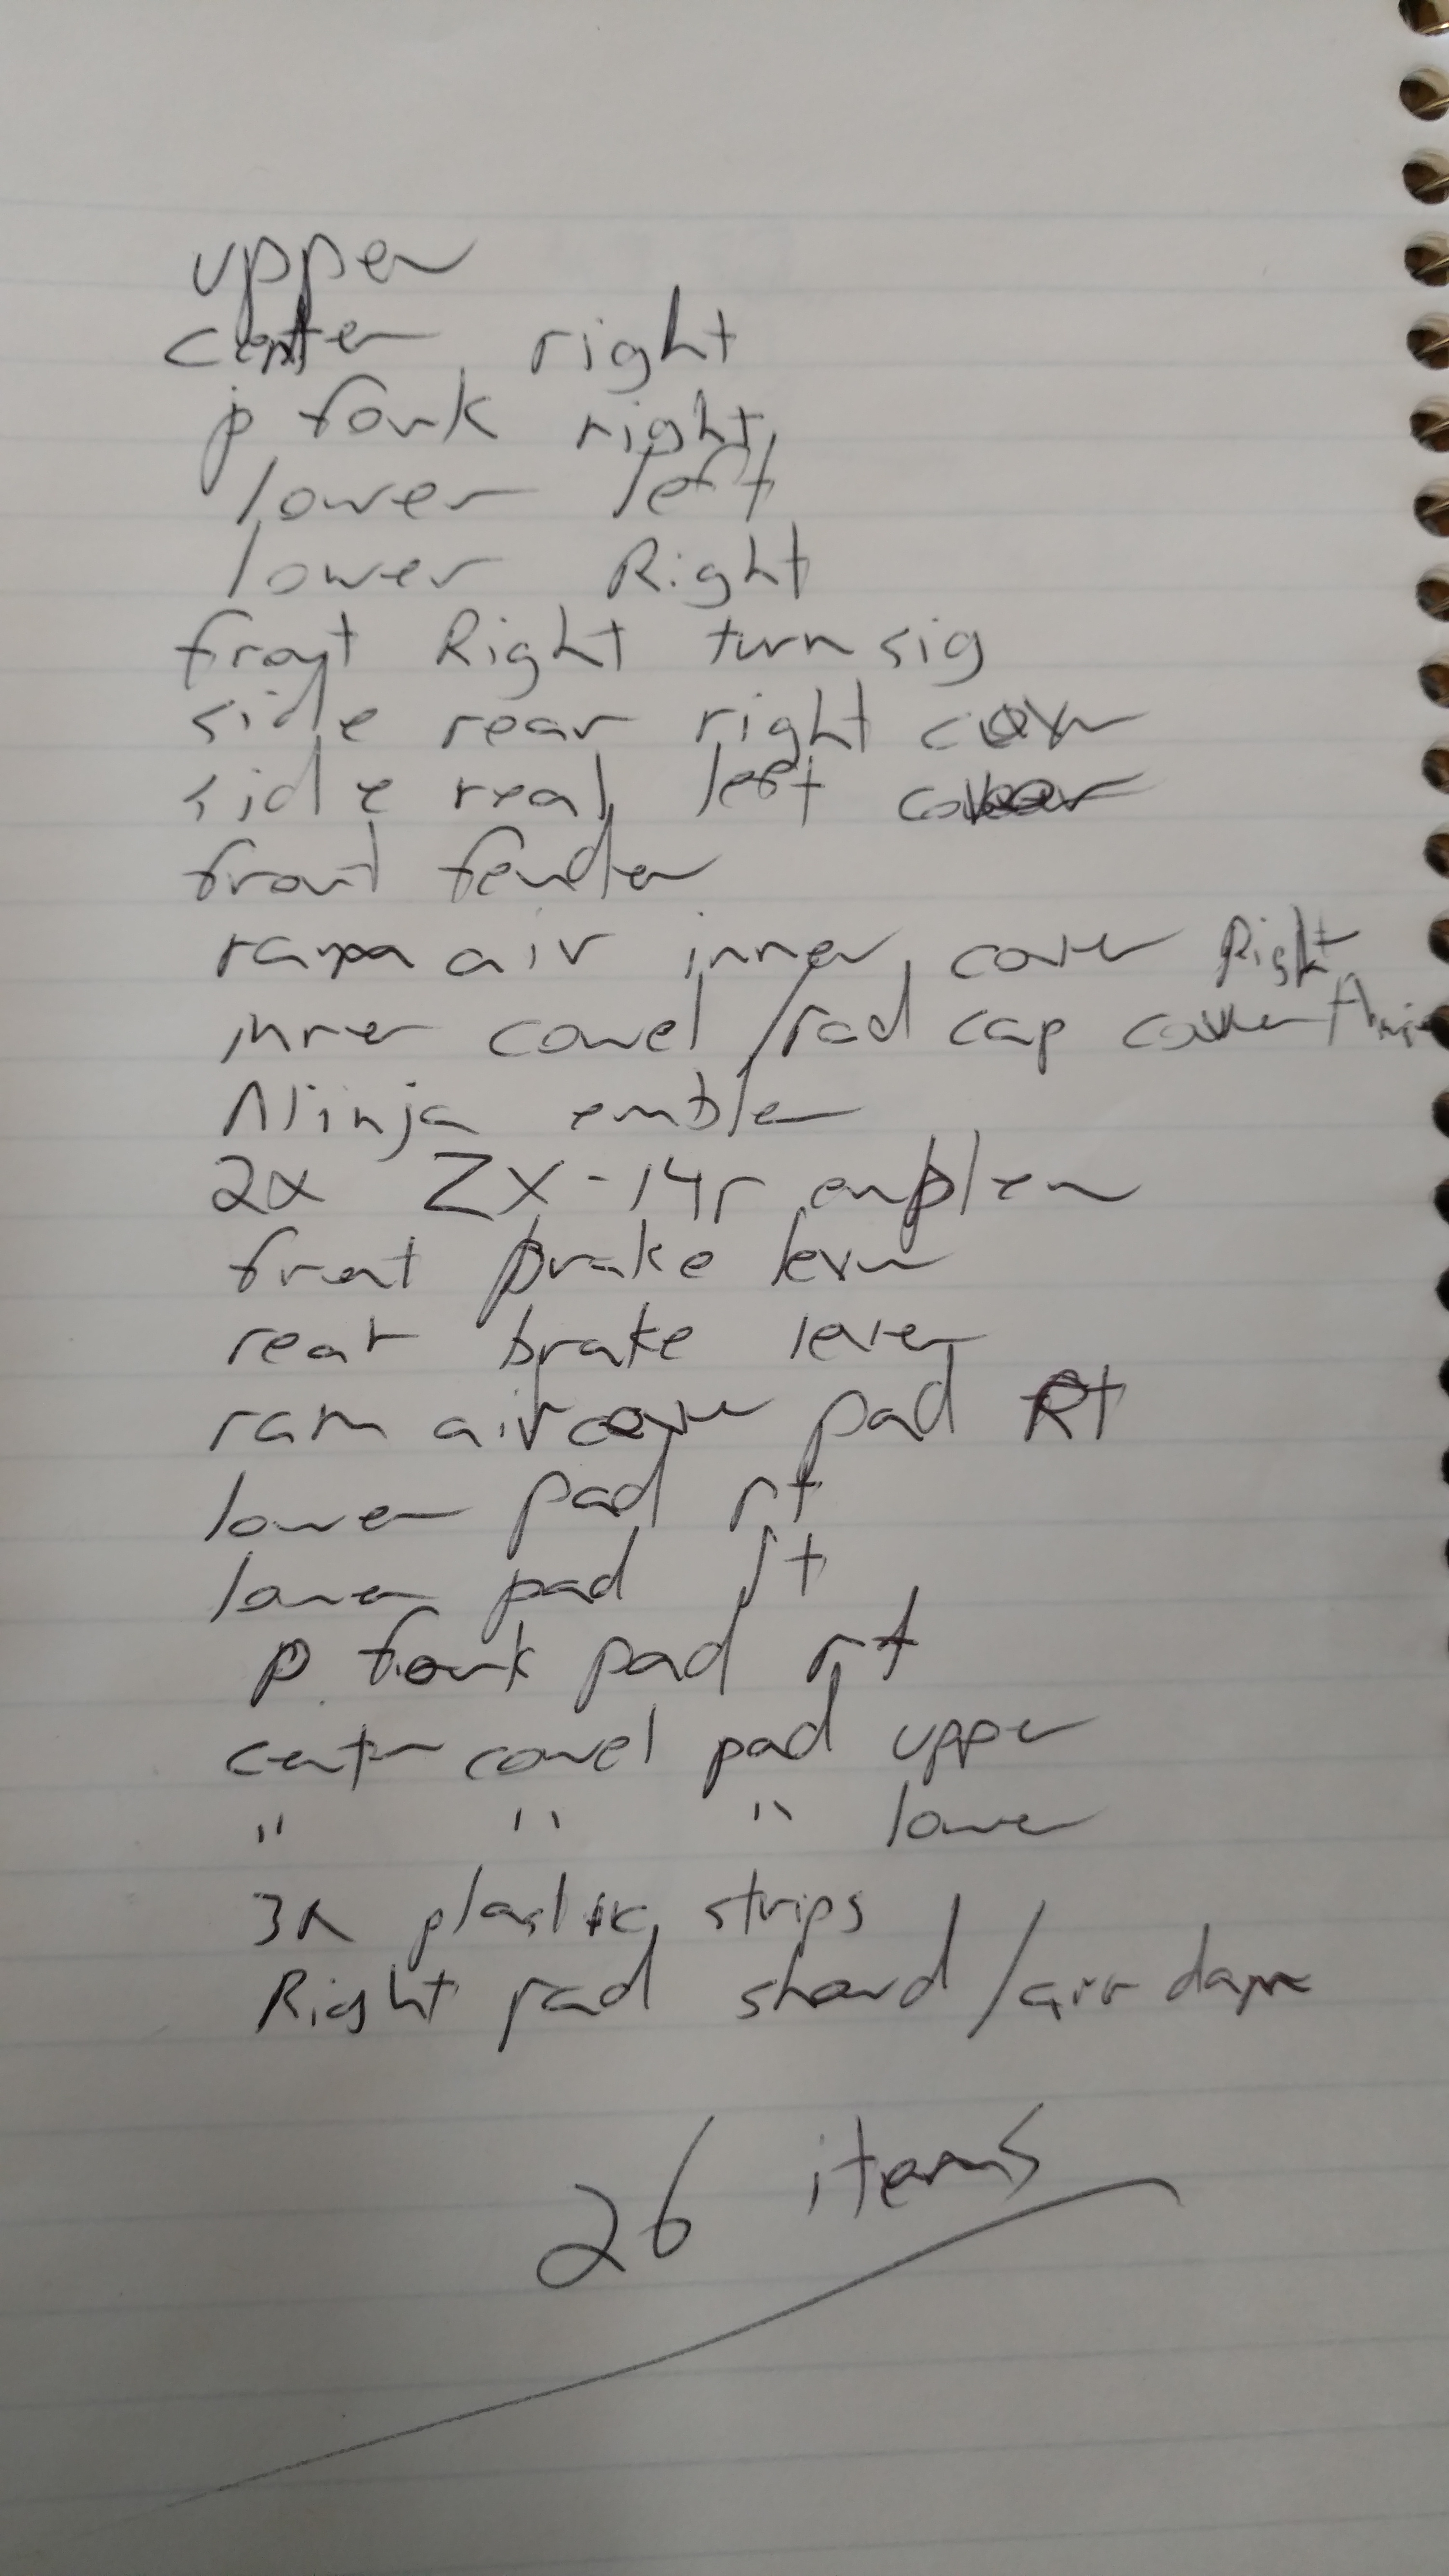 upper
center right
p fork right
lower left
lower Right
front Right turn sig
side rear right cover
side rear left cover
front fender
ram air inner cover Right
inner cowel /rad cap cover
Ninja emblem
2x ZX-14r emblem
front brake lever
rear brake lever
ram air cover pad Rt
lower pad rt
lower pad lt
p fork pad rt
center cowel pad upper
" " " lower
3x plastic strips
Right rad shoud /air dam
26 items